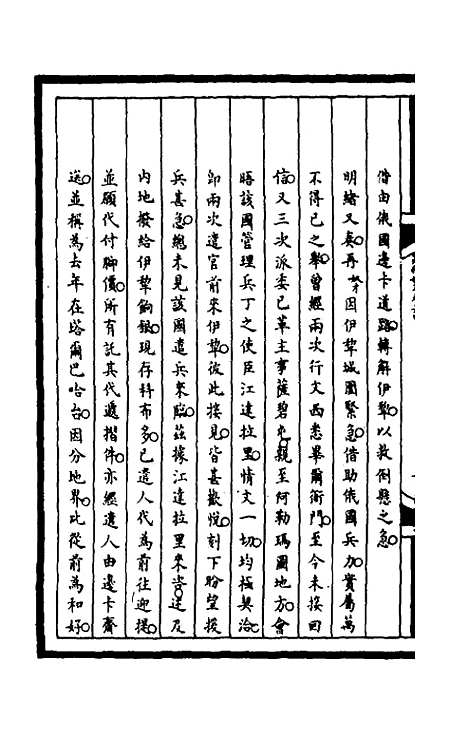 借由俄國邊卡道路轉解伊犂以救倒懸之急
明緒又奏再奴才因伊犂城圍緊急借助俄國兵力實屬萬
不得已之舉曾經兩次行文西悉畢爾衙門至今未接回
信又三次派委已革主事薩碧屯親至阿勒瑪圖地方會
晤該國管理兵丁之使臣江達拉里情文一切均極契洽
卽兩次遣官前來伊犂彼此接見皆甚歡悅刻下盼望援
兵甚急總未見該國遣兵來臨茲據江達拉里來咨述及
內地撥給伊犂餉銀現存科布多已遣人代為前往迎提
並願代付腳價所有託其代遞摺件亦經遣人由邊卡齎
送並稱為去年在塔爾巴哈台因分地界比從前為和好